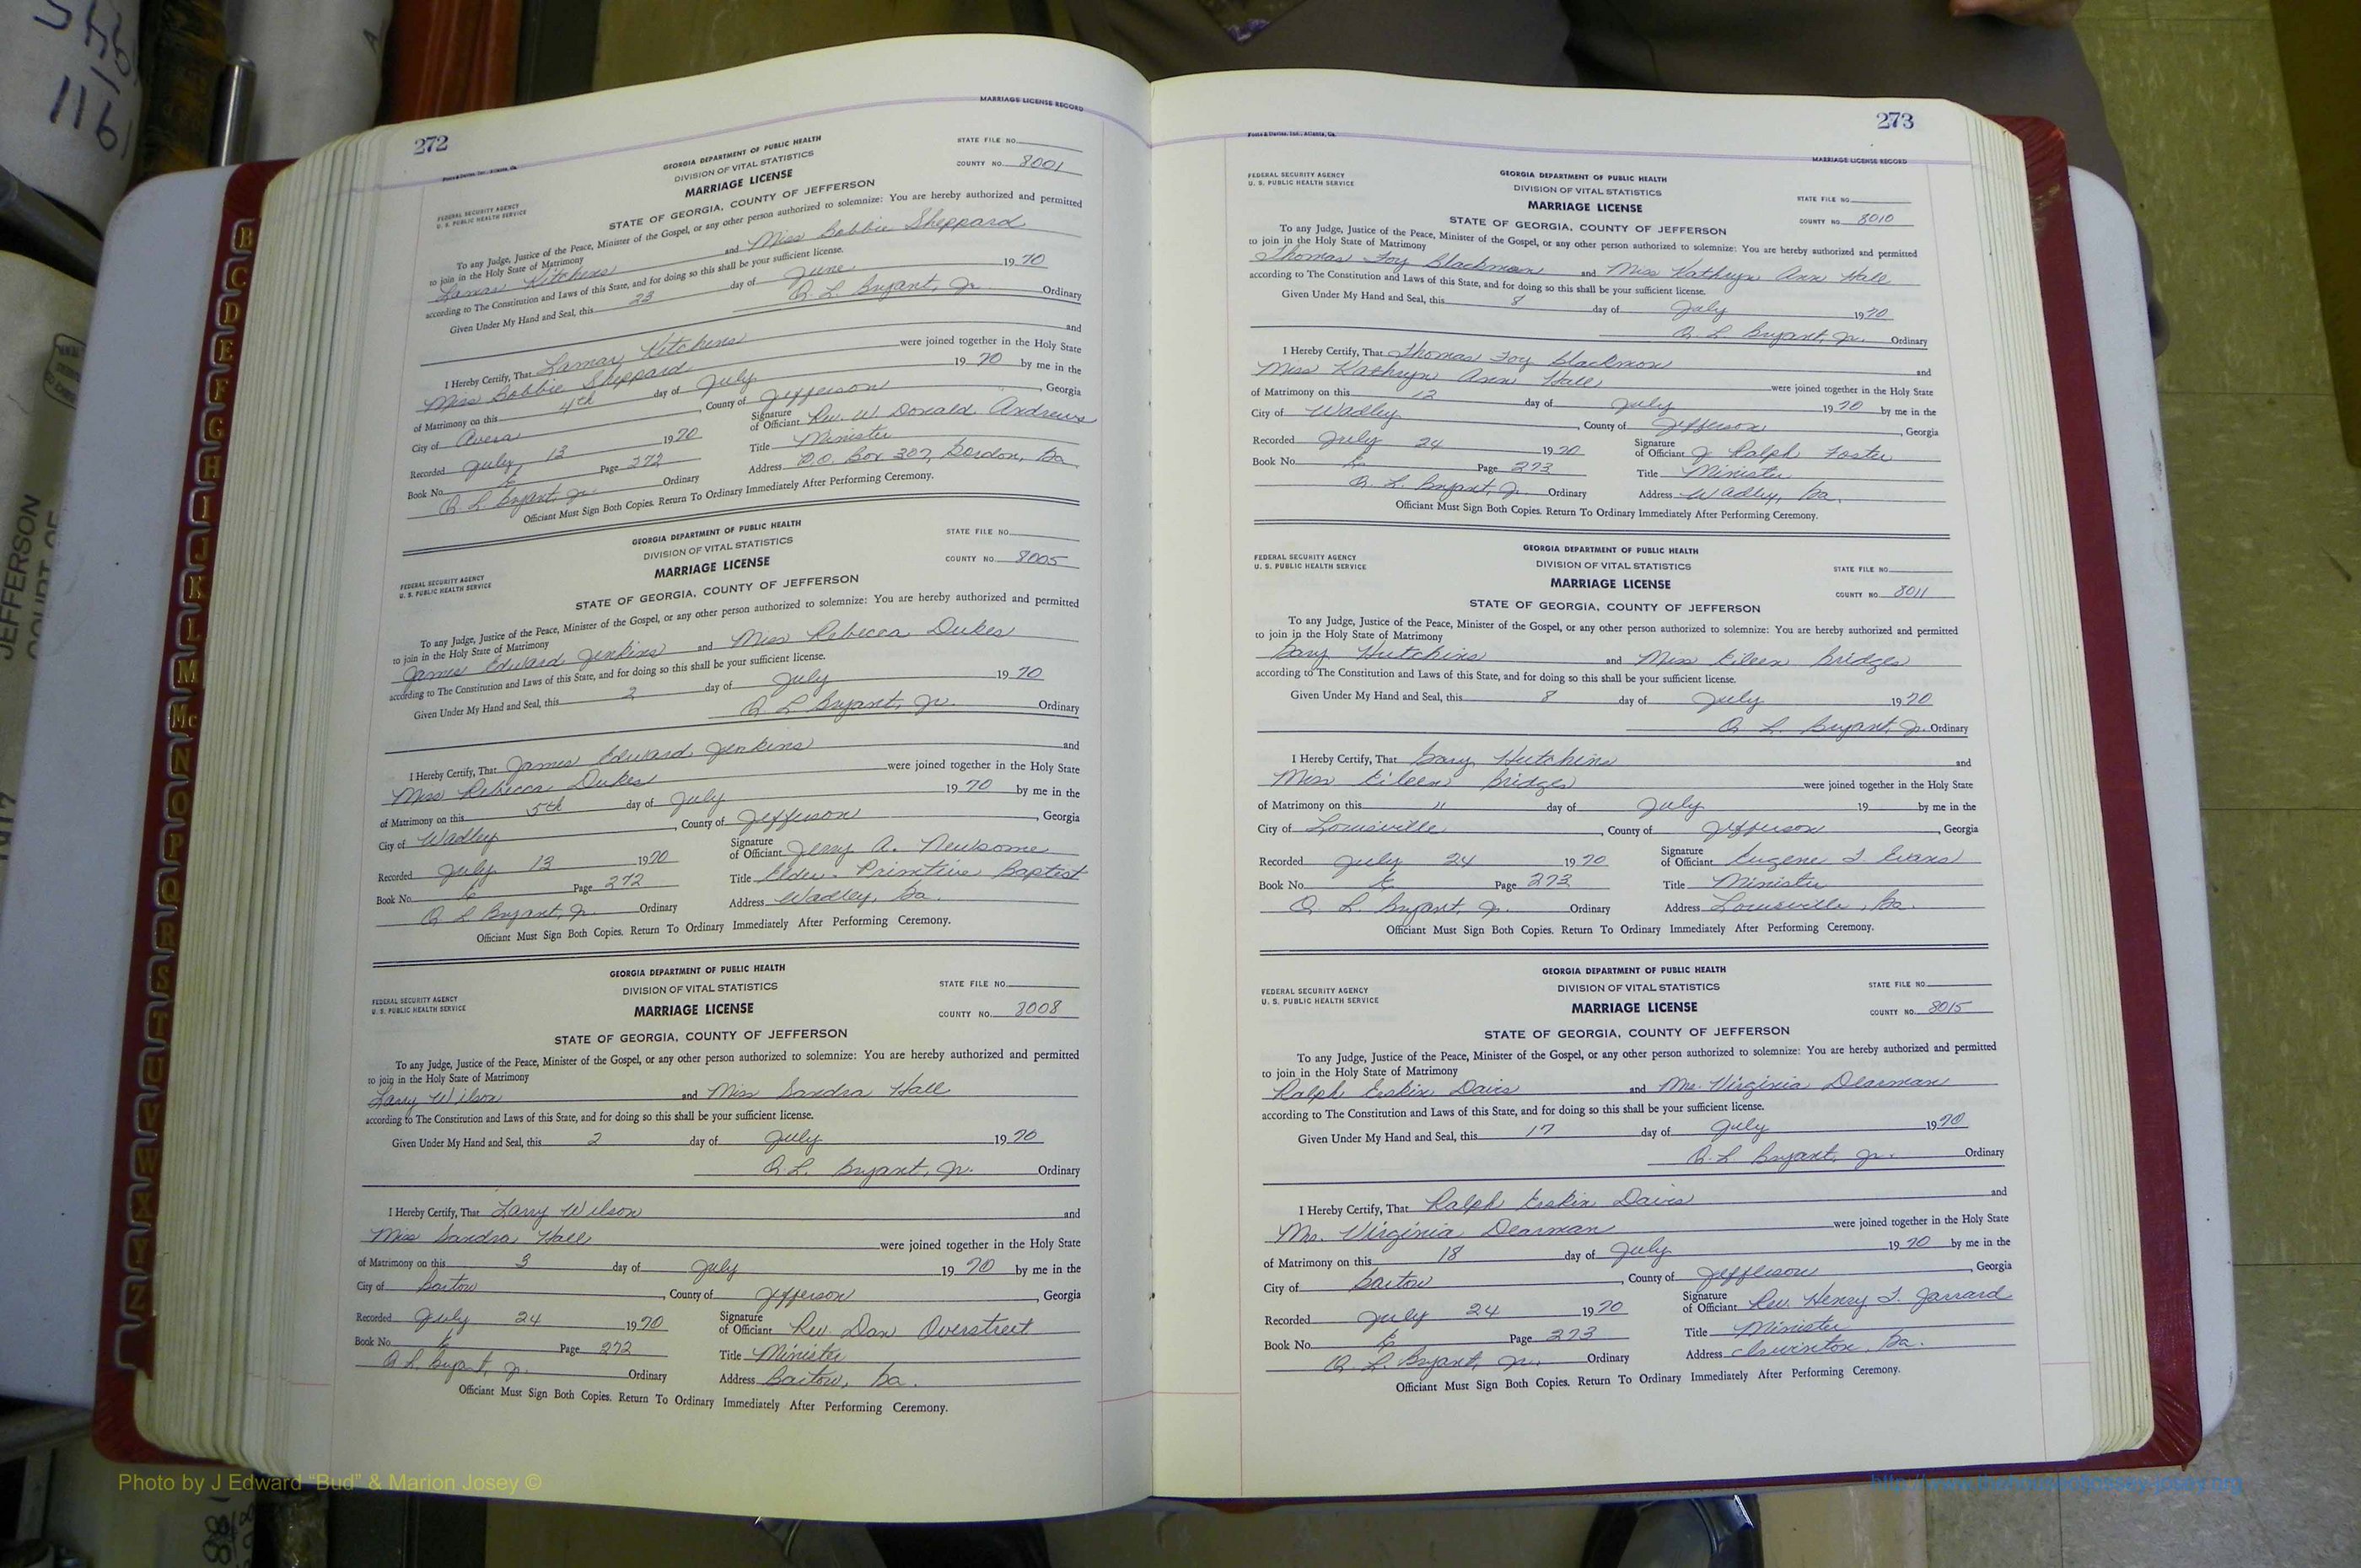 272
MARRIAGE LICENSE RECORD
Foote & Davies, Inc., Atlanta, Ga.
GEORGIA DEPARTMENT OF PUBLIC HEALTH
DIVISION OF VITAL STATISTICS
MARRIAGE LICENSE
STATE OF GEORGIA, COUNTY OF JEFFERSON
FEDERAL SECURITY AGENCY
U. S. PUBLIC HEALTH SERVICE
STATE FILE NO.
COUNTY NO. 8001
To any Judge, Justice of the Peace, Minister of the Gospel, or any other person authorized to solemnize: You are hereby authorized and permitted
to join in the Holy State of Matrimony
Lamar Kitchens and Miss Bobbie Sheppard
according to The Constitution and Laws of this State, and for doing so this shall be your sufficient license.
Given Under My Hand and Seal, this 23 day of June 1970
Q. L. Bryant, Jr. Ordinary
I Hereby Certify, That Lamar Kitchens and
Miss Bobbie Sheppard were joined together in the Holy State
of Matrimony on this 4th day of July 1970 by me in the
City of Avera, County of Jefferson, Georgia
Recorded July 13 1970 Signature of Officiant Rev. W Donald Andrews
Book No. E Page 272 Title Minister
Q. L. Bryant, Jr. Ordinary Address P.O. Box 307, Gordon, Ga
Officiant Must Sign Both Copies. Return To Ordinary Immediately After Performing Ceremony.
GEORGIA DEPARTMENT OF PUBLIC HEALTH
DIVISION OF VITAL STATISTICS
MARRIAGE LICENSE
STATE OF GEORGIA, COUNTY OF JEFFERSON
FEDERAL SECURITY AGENCY
U. S. PUBLIC HEALTH SERVICE
STATE FILE NO.
COUNTY NO. 8005
To any Judge, Justice of the Peace, Minister of the Gospel, or any other person authorized to solemnize: You are hereby authorized and permitted
to join in the Holy State of Matrimony
James Edward Jenkins and Miss Rebecca Dukes
according to The Constitution and Laws of this State, and for doing so this shall be your sufficient license.
Given Under My Hand and Seal, this 2 day of July 1970
Q. L. Bryant, Jr. Ordinary
I Hereby Certify, That James Edward Jenkins and
Miss Rebecca Dukes were joined together in the Holy State
of Matrimony on this 5th day of July 1970 by me in the
City of Wadley, County of Jefferson, Georgia
Recorded July 13 1970 Signature of Officiant Jerry A. Newsome
Book No. E Page 272 Title Elder - Primitive Baptist
Q. L. Bryant, Jr. Ordinary Address Wadley, Ga.
Officiant Must Sign Both Copies. Return To Ordinary Immediately After Performing Ceremony.
GEORGIA DEPARTMENT OF PUBLIC HEALTH
DIVISION OF VITAL STATISTICS
MARRIAGE LICENSE
STATE OF GEORGIA, COUNTY OF JEFFERSON
FEDERAL SECURITY AGENCY
U. S. PUBLIC HEALTH SERVICE
STATE FILE NO.
COUNTY NO. 8008
To any Judge, Justice of the Peace, Minister of the Gospel, or any other person authorized to solemnize: You are hereby authorized and permitted
to join in the Holy State of Matrimony
Larry Wilson and Miss Sandra Hall
according to The Constitution and Laws of this State, and for doing so this shall be your sufficient license.
Given Under My Hand and Seal, this 2 day of July 1970
Q. L. Bryant, Jr. Ordinary
I Hereby Certify, That Larry Wilson and
Miss Sandra Hall were joined together in the Holy State
of Matrimony on this 3 day of July 1970 by me in the
City of Bartow, County of Jefferson, Georgia
Recorded July 24 1970 Signature of Officiant Rev Dan Overstreet
Book No. E Page 272 Title Minister
Q. L. Bryant, Jr. Ordinary Address Bartow, Ga.
Officiant Must Sign Both Copies. Return To Ordinary Immediately After Performing Ceremony.
273
Foote & Davies, Inc., Atlanta, Ga.
MARRIAGE LICENSE RECORD
FEDERAL SECURITY AGENCY
U. S. PUBLIC HEALTH SERVICE
GEORGIA DEPARTMENT OF PUBLIC HEALTH
DIVISION OF VITAL STATISTICS
MARRIAGE LICENSE
STATE OF GEORGIA, COUNTY OF JEFFERSON
STATE FILE NO.
COUNTY NO. 8010
To any Judge, Justice of the Peace, Minister of the Gospel, or any other person authorized to solemnize: You are hereby authorized and permitted
to join in the Holy State of Matrimony
Thomas Foy Blackmon and Miss Kathryn Ann Hall
according to The Constitution and Laws of this State, and for doing so this shall be your sufficient license.
Given Under My Hand and Seal, this 8 day of July 1970
Q. L. Bryant, Jr. Ordinary
I Hereby Certify, That Thomas Foy Blackmon and
Miss Kathryn Ann Hall were joined together in the Holy State
of Matrimony on this 12 day of July 1970 by me in the
City of Wadley, County of Jefferson, Georgia
Recorded July 24 1970 Signature of Officiant J Ralph Foster
Book No. E Page 273 Title Minister
Q. L. Bryant, Jr. Ordinary Address Wadley, Ga.
Officiant Must Sign Both Copies. Return To Ordinary Immediately After Performing Ceremony.
FEDERAL SECURITY AGENCY
U. S. PUBLIC HEALTH SERVICE
GEORGIA DEPARTMENT OF PUBLIC HEALTH
DIVISION OF VITAL STATISTICS
MARRIAGE LICENSE
STATE OF GEORGIA, COUNTY OF JEFFERSON
STATE FILE NO.
COUNTY NO. 8011
To any Judge, Justice of the Peace, Minister of the Gospel, or any other person authorized to solemnize: You are hereby authorized and permitted
to join in the Holy State of Matrimony
Gary Hutchins and Miss Eileen Bridges
according to The Constitution and Laws of this State, and for doing so this shall be your sufficient license.
Given Under My Hand and Seal, this 8 day of July 1970
Q. L. Bryant, Jr. Ordinary
I Hereby Certify, That Gary Hutchins and
Miss Eileen Bridges were joined together in the Holy State
of Matrimony on this 11 day of July 19 by me in the
City of Louisville, County of Jefferson, Georgia
Recorded July 24 1970 Signature of Officiant Eugene T. Evans
Book No. E Page 273 Title Minister
Q. L. Bryant, Jr. Ordinary Address Louisville, Ga.
Officiant Must Sign Both Copies. Return To Ordinary Immediately After Performing Ceremony.
FEDERAL SECURITY AGENCY
U. S. PUBLIC HEALTH SERVICE
GEORGIA DEPARTMENT OF PUBLIC HEALTH
DIVISION OF VITAL STATISTICS
MARRIAGE LICENSE
STATE OF GEORGIA, COUNTY OF JEFFERSON
STATE FILE NO.
COUNTY NO. 8015
To any Judge, Justice of the Peace, Minister of the Gospel, or any other person authorized to solemnize: You are hereby authorized and permitted
to join in the Holy State of Matrimony
Ralph Erskin Davis and Mrs. Virginia Dearman
according to The Constitution and Laws of this State, and for doing so this shall be your sufficient license.
Given Under My Hand and Seal, this 17 day of July 1970
Q. L. Bryant, Jr. Ordinary
I Hereby Certify, That Ralph Erskin Davis and
Mrs. Virginia Dearman were joined together in the Holy State
of Matrimony on this 18 day of July 1970 by me in the
City of Bartow, County of Jefferson, Georgia
Recorded July 24 1970 Signature of Officiant Rev. Henry T. Jarrard
Book No. E Page 273 Title Minister
Q. L. Bryant, Jr. Ordinary Address Irwinton, Ga.
Officiant Must Sign Both Copies. Return To Ordinary Immediately After Performing Ceremony.
B
C
D
E
F
G
H
I
J
K
L
M
Mc
N
O
P
Q
R
S
T
U
V
W
X
Y
Z
116
JEFFERSON
COURT OF
Photo by J Edward “Bud” & Marion Josey ©